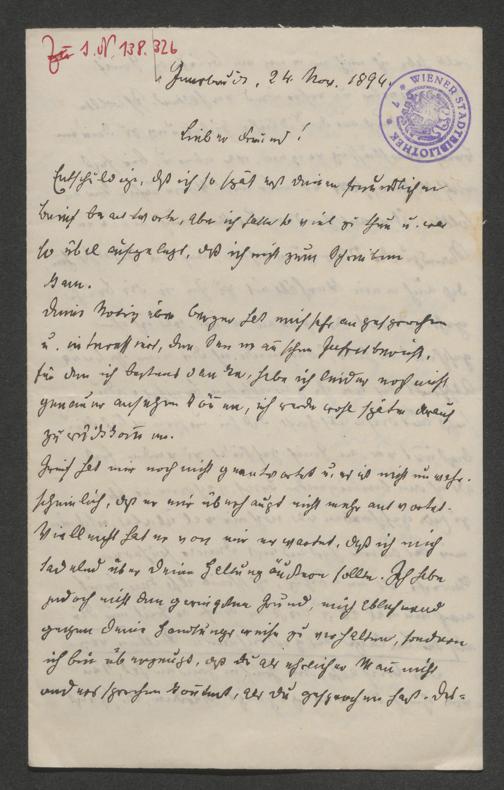 Zu I.N. 138.326
WIENER STADTBIBLIOTHEK
Innsbruck, 24. Nov. 1894.
Lieber Freund!
Entschuldige, daß ich so spät erst deinen freundlichen
Brief beantworte, aber ich hatte so viel zu thun u. war
so übel aufgelegt, daß ich nicht zum Schreiben
kam.
Deine Notiz über Berger hat mich sehr angesprochen
u. interessiert, den Jahresbericht,
für den ich bestens danke, habe ich leider noch nicht
genauer ansehen können, ich werde wohl später darauf
zurückkommen.
hat mir noch nicht geantwortet u. es ist nicht unwahr-
scheinlich, daß er mir überhaupt nicht mehr antwortet.
Vielleicht hat er von mir erwartet, daß ich mich
tadelnd über Deine Haltung äußern sollte. Ich habe
jedoch nicht den geringsten Grund, mich ablehnend
gegen Deine Handlungsweise zu verhalten, sondern
ich bin überzeugt, daß du als ehrlicher Mann nicht
anders sprechen konntest, als du gesprochen hast. Des-